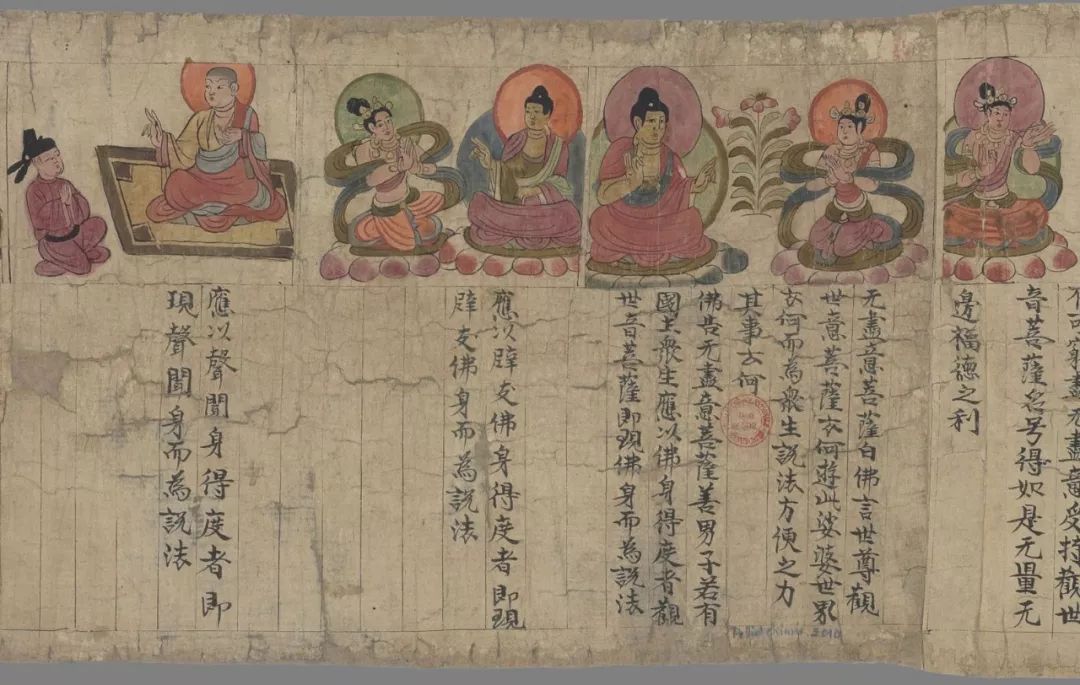 不可窮盡无盡意受持觀世
音菩薩名号得如是无量无
邊福德之利
无盡意菩薩白佛言世尊觀
世意菩薩云何遊此娑婆世界
云何而為衆生說法方便之力
其事云何
佛告无盡意菩薩善男子若有
國土衆生應以佛身得度者觀
世音菩薩即現佛身而為說法
應以辟支佛身得度者即現
辟支佛身而為說法
應以聲聞身得度者即
現聲聞身而為說法
Pelliot chinois 2010